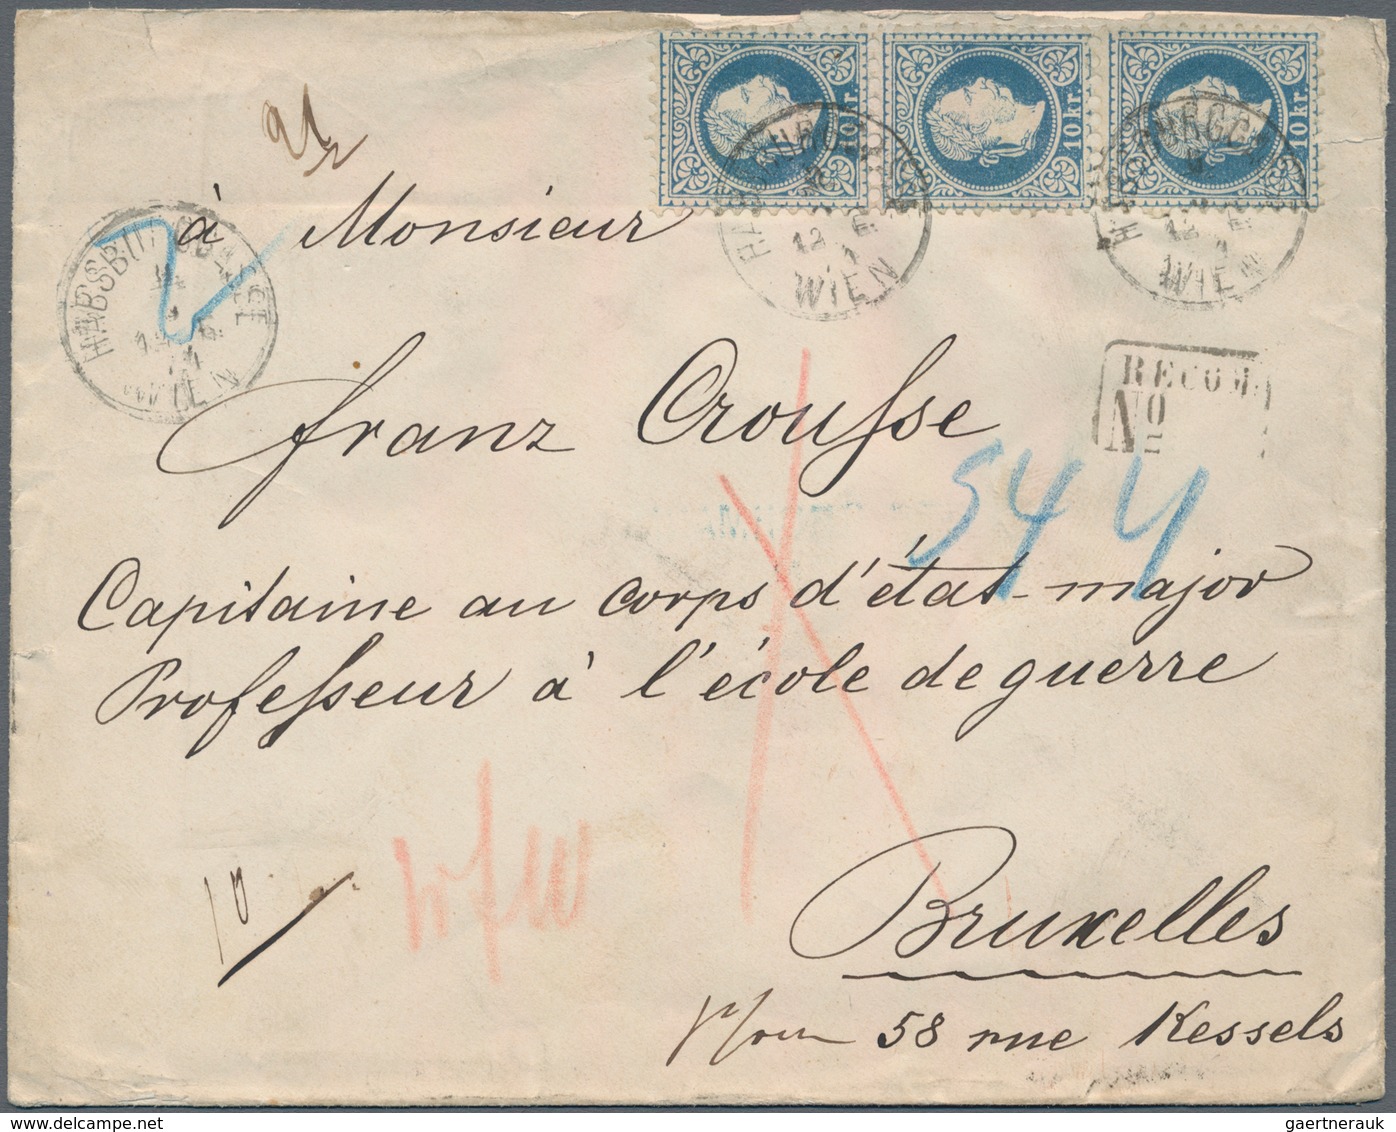 10 kr. 10 kr. 10 kr.
HABSBURGGASSE
WIEN
HABSBURGGASSE
12
WIEN
HABSBURGGASSE
12
WIEN
à Monsieur
RECOM
No
Franz Crousse
544
Capitaine au corps d'état-major
Professeur à l'école de guerre
10
Bruxelles
58 rue Kessels
gaertnerauk